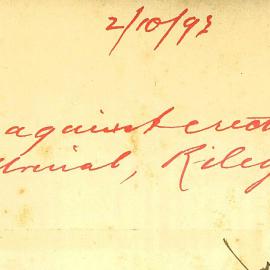 2/10/93
against erect
Urinal, Riley